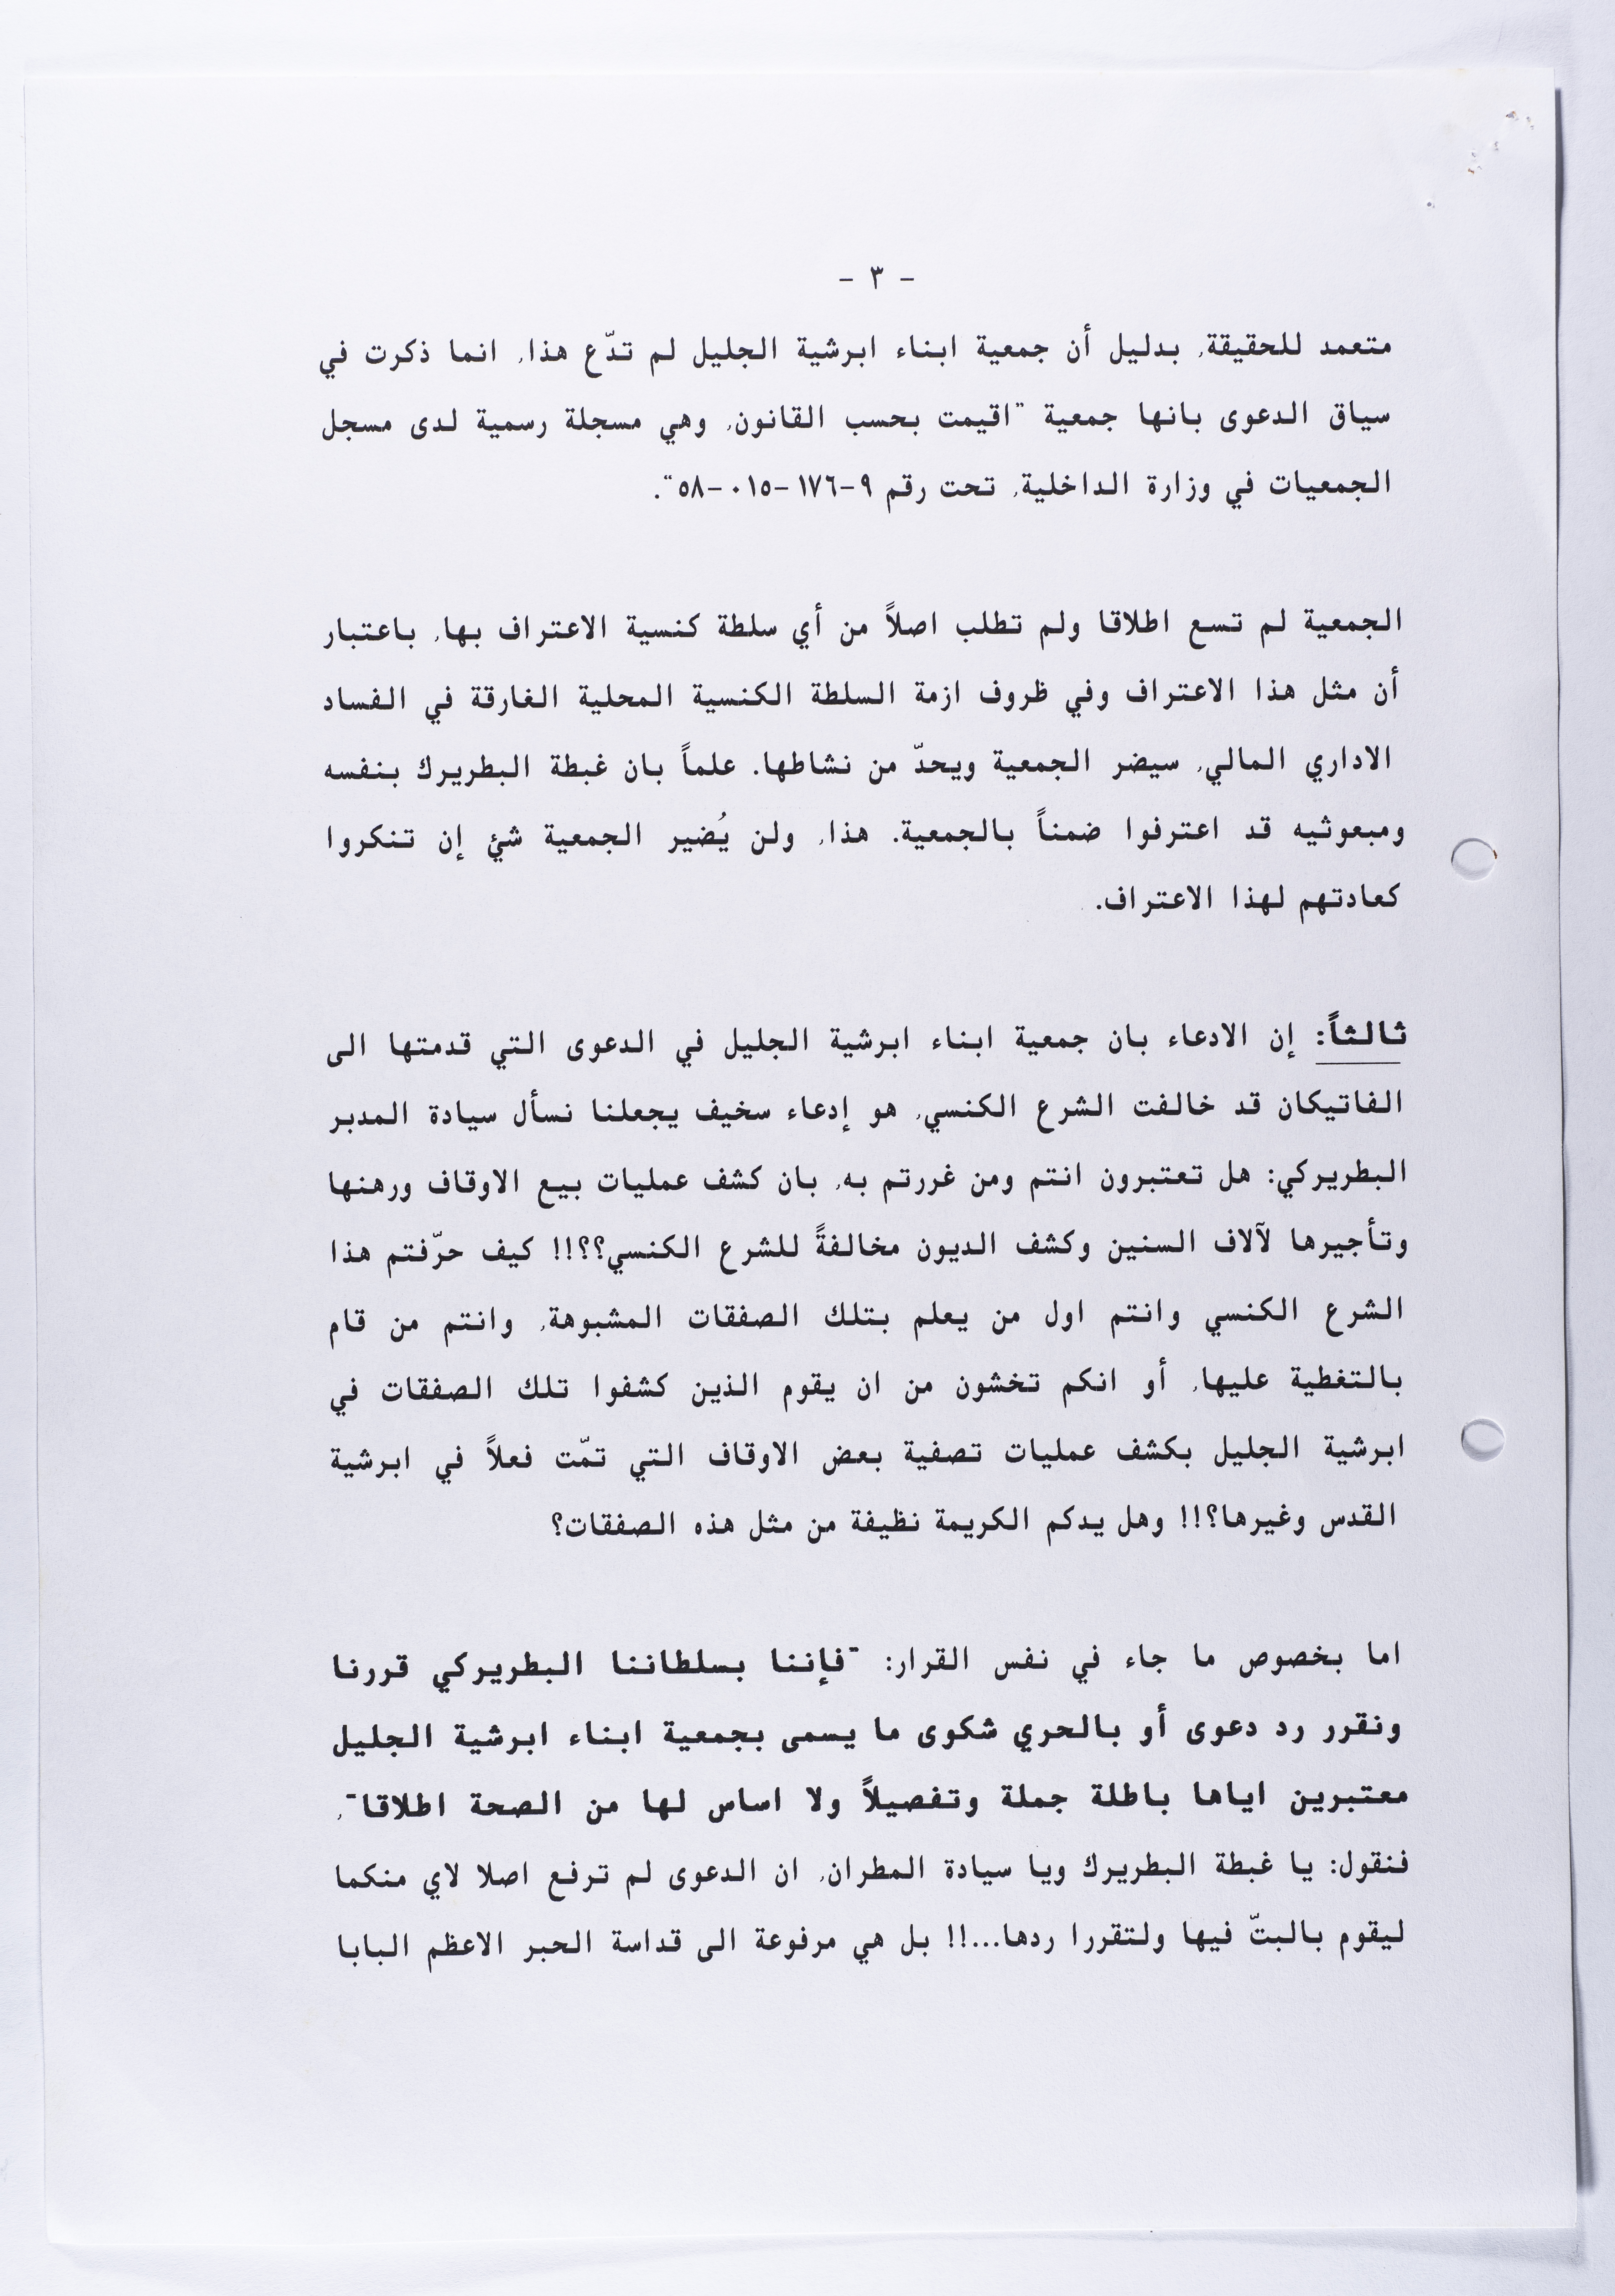 - ٣ -
متعمد للحقيقة، بدليل أن جمعية ابناء ابرشية الجليل لم تدّع هذا، انما ذكرت في
سياق الدعوى بانها جمعية "اقيمت بحسب القانون، وهي مسجلة رسمية لدى مسجل
الجمعيات في وزارة الداخلية، تحت رقم ٩-١٧٦-٠١٥-٥٨".
الجمعية لم تسع اطلاقا ولم تطلب اصلاً من أي سلطة كنسية الاعتراف بها، باعتبار
أن مثل هذا الاعتراف وفي ظروف ازمة السلطة الكنسية المحلية الغارقة في الفساد
الاداري المالي، سيضر الجمعية ويحدّ من نشاطها. علماً بان غبطة البطريرك بنفسه
ومبعوثيه قد اعترفوا ضمناً بالجمعية. هذا، ولن يُضير الجمعية شئ إن تنكروا
كعادتهم لهذا الاعتراف.
ثالثاً: إن الادعاء بان جمعية ابناء ابرشية الجليل في الدعوى التي قدمتها الى
الفاتيكان قد خالفت الشرع الكنسي، هو إدعاء سخيف يجعلنا نسأل سيادة المدبر
البطريركي: هل تعتبرون انتم ومن غررتم به، بان كشف عمليات بيع الاوقاف ورهنها
وتأجيرها لآلاف السنين وكشف الديون مخالفةً للشرع الكنسي؟؟!! كيف حرّفتم هذا
الشرع الكنسي وانتم اول من يعلم بتلك الصفقات المشبوهة، وانتم من قام
بالتغطية عليها، أو انكم تخشون من ان يقوم الذين كشفوا تلك الصفقات في
ابرشية الجليل بكشف عمليات تصفية بعض الاوقاف التي تمّت فعلاً في ابرشية
القدس وغيرها؟!! وهل يدكم الكريمة نظيفة من مثل هذه الصفقات؟
اما بخصوص ما جاء في نفس القرار: "فإننا بسلطاننا البطريركي قررنا
ونقرر رد دعوى أو بالحري شكوى ما يسمى بجمعية ابناء ابرشية الجليل
معتبرين اياها باطلة جملة وتفصيلاً ولا اساس لها من الصحة اطلاقا"،
فنقول: يا غبطة البطريرك ويا سيادة المطران، ان الدعوى لم ترفع اصلا لاي منكما
ليقوم بالبتّ فيها ولتقررا ردها...!! بل هي مرفوعة الى قداسة الحبر الاعظم البابا